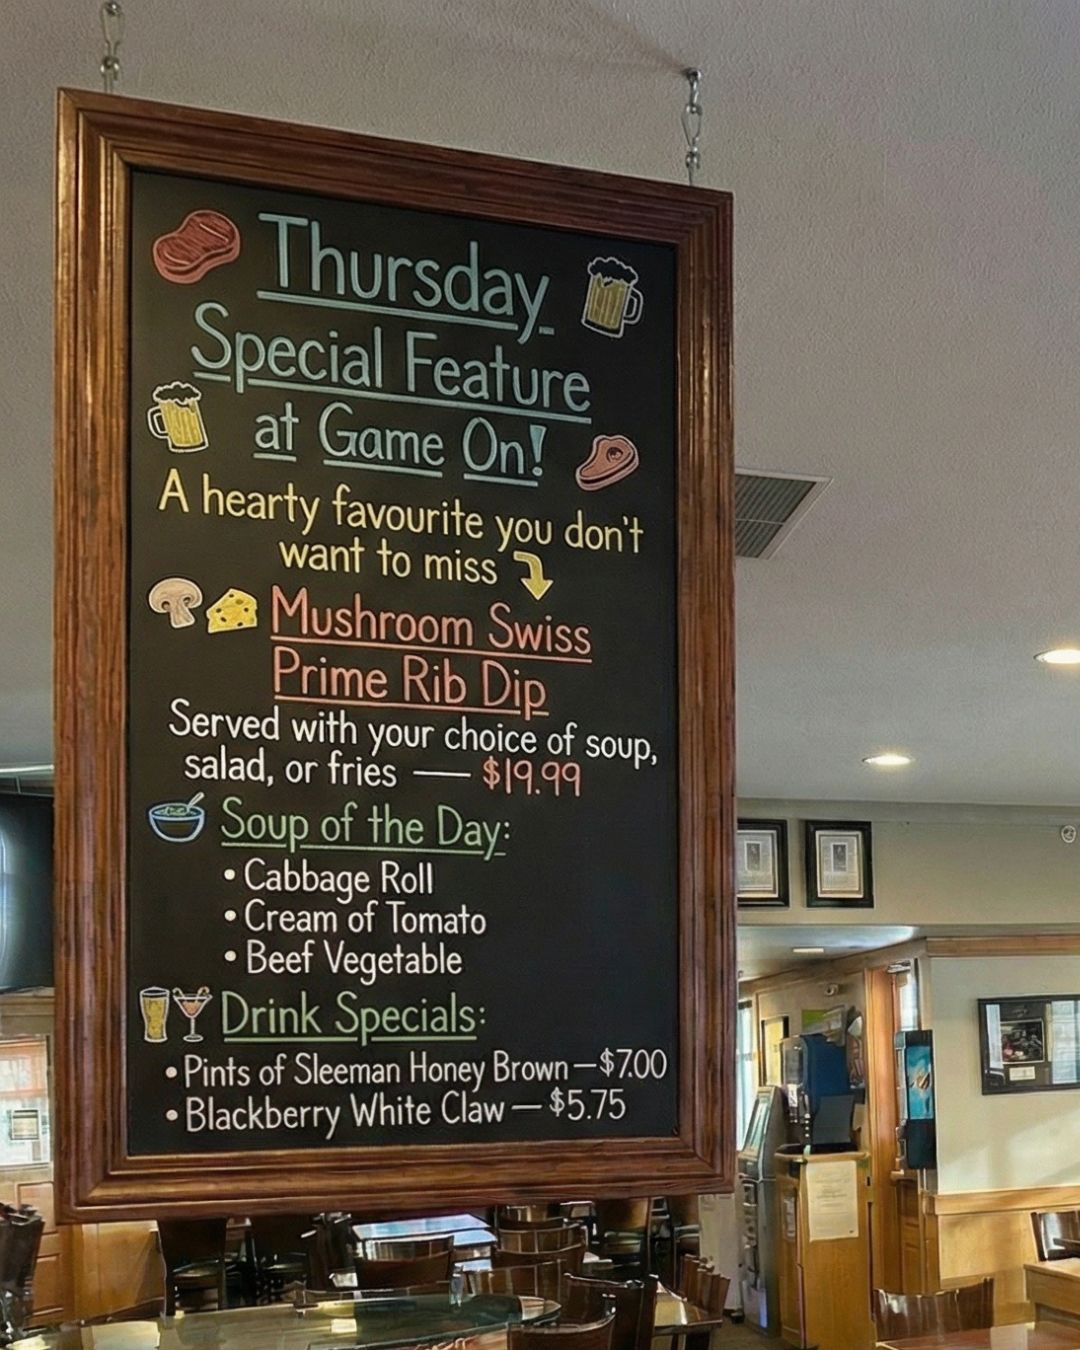 Thursday
Special Feature
at Game On!
A hearty favourite you don't
want to miss
Mushroom Swiss
Prime Rib Dip
Served with your choice of soup,
salad, or fries — $19.99
Soup of the Day:
• Cabbage Roll
• Cream of Tomato
• Beef Vegetable
Drink Specials:
• Pints of Sleeman Honey Brown — $7.00
• Blackberry White Claw — $5.75